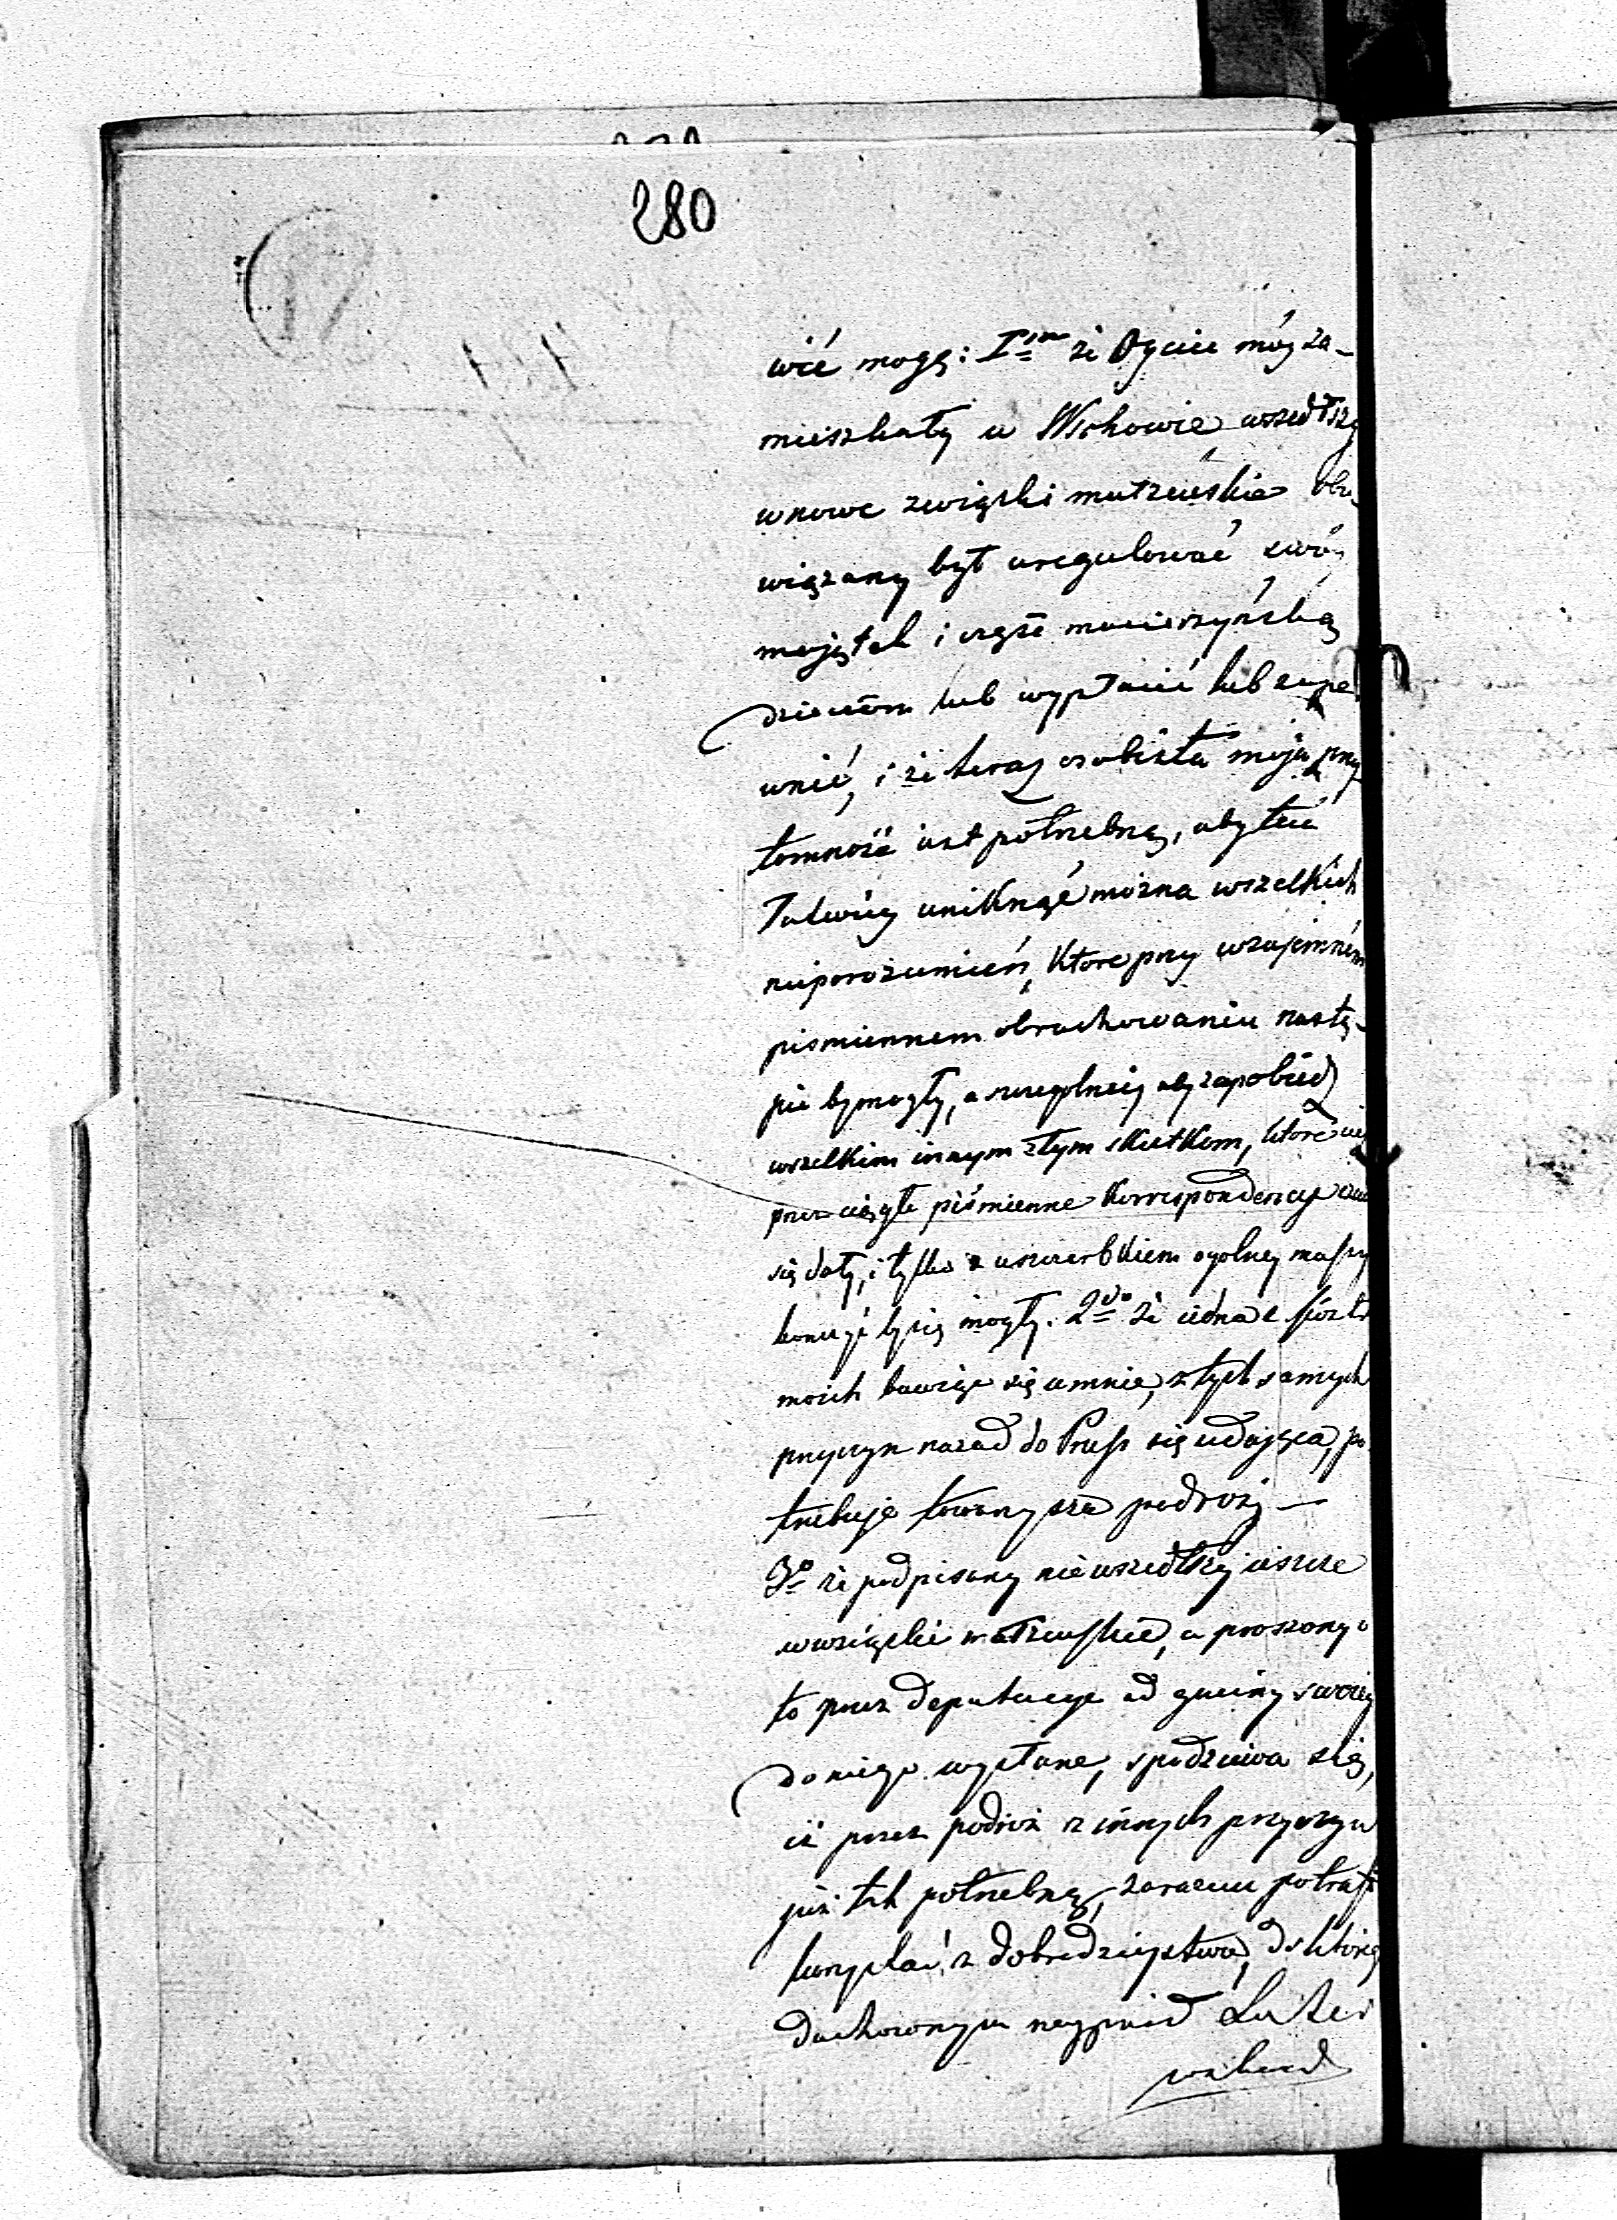 280
wić mogę: Imo że Oyciec móy za-
mieszkały w Wschowie wszedłszy
w nowe związki małżeńskie obo-
wiązany był uregulować swóy
maiątek i część macierzyńską
dzieciom lub wypłacić lub zape
wnić, i że teraz osobista moja przy
tomność iest potrzebną, aby tem
łatwiey uniknąć można wszelkich
nieporozumień, które przy wzajemném
pismiennem obrachowaniu nastą-
pić by mogły, a szczególniey aby zapobiedz
wszelkim innym złym skutkom, które
przez ciągłe piśmienne Korrespondencye
się dały, i tylko z uszczerbkiem ogolney massy
kończyć by się mogły. 2do że iedna z sióstr
moich bawiąca się u mnie, z tych samych
przyczyn nazad do Pruss się udająca, po
trzebuje towarzysza podroży —
3o że podpisany nie wszedłszy ieszcze
w związki małżeńskie, a proszony o
to przez deputacye od gminy swoiey
do niego wysłane, spodziewa się,
iż przez podroż z innych przyczyn
już tak potrzebną, zarazem potrafi
korzystać z dobrodzieystwa, do którego
duchownym naypierw Luter